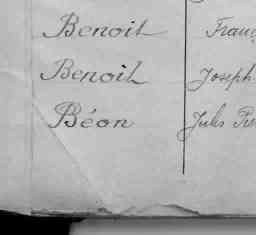 Benoit Franç
Benoit Joseph
Béon Jules